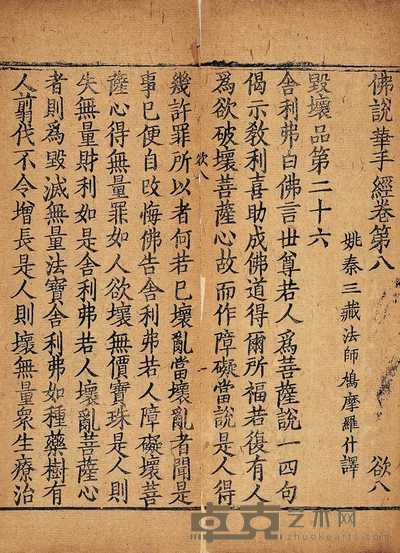 佛說華手經卷第八 欲八
姚秦三藏法師鳩摩羅什譯
毀壞品第二十六
舍利弗白佛言世尊若人為菩薩說一四句
偈示教利喜助成佛道得爾所福若復有人
為欲破壞菩薩心故而作障礙當說是人得
欲
幾許罪所以者何若已壞亂當壞亂者聞是
事已便自改悔佛告舍利弗若人障礙壞菩
薩心得無量罪如人欲壞無價寶珠是人則
失無量財利如是舍利弗若人壞亂菩薩心
者則為毀滅無量法寶舍利弗如種藥樹有
人翦伐不令增長是人則壞無量衆生療治
卓克艺术网
www.zhuokearts.com